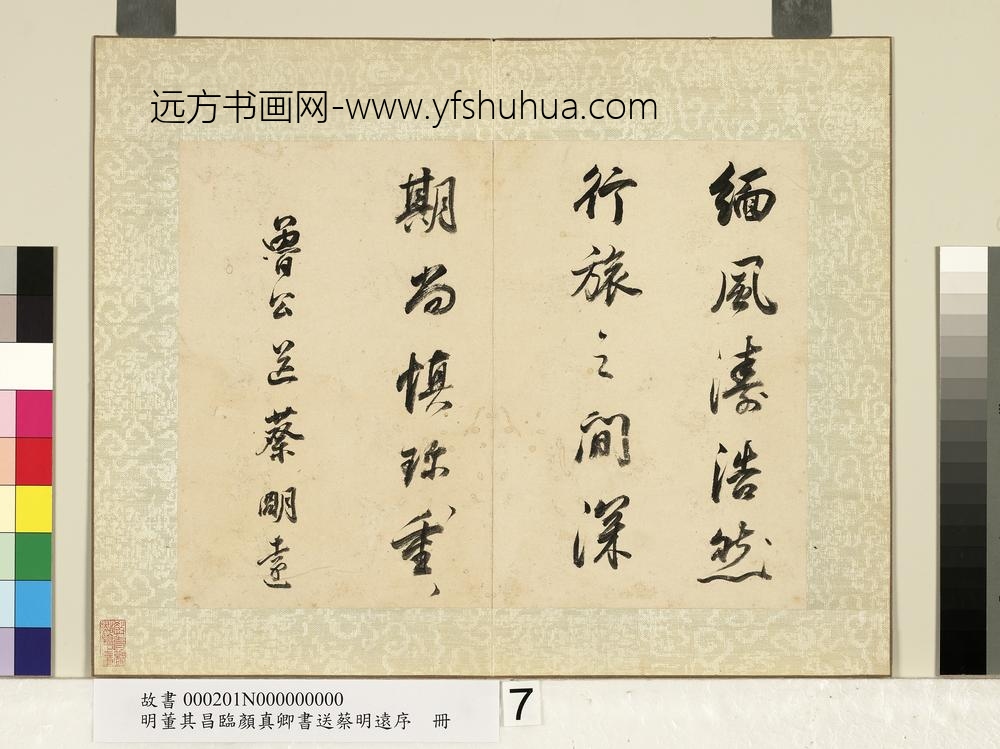 远方书画网-www.yfshuhua.com
缅風濤浩然
行旅之間深
期尚慎珍重
魯公送蔡明遠
故書 000201N000000000
明董其昌臨顏真卿書送蔡明遠序 冊
7